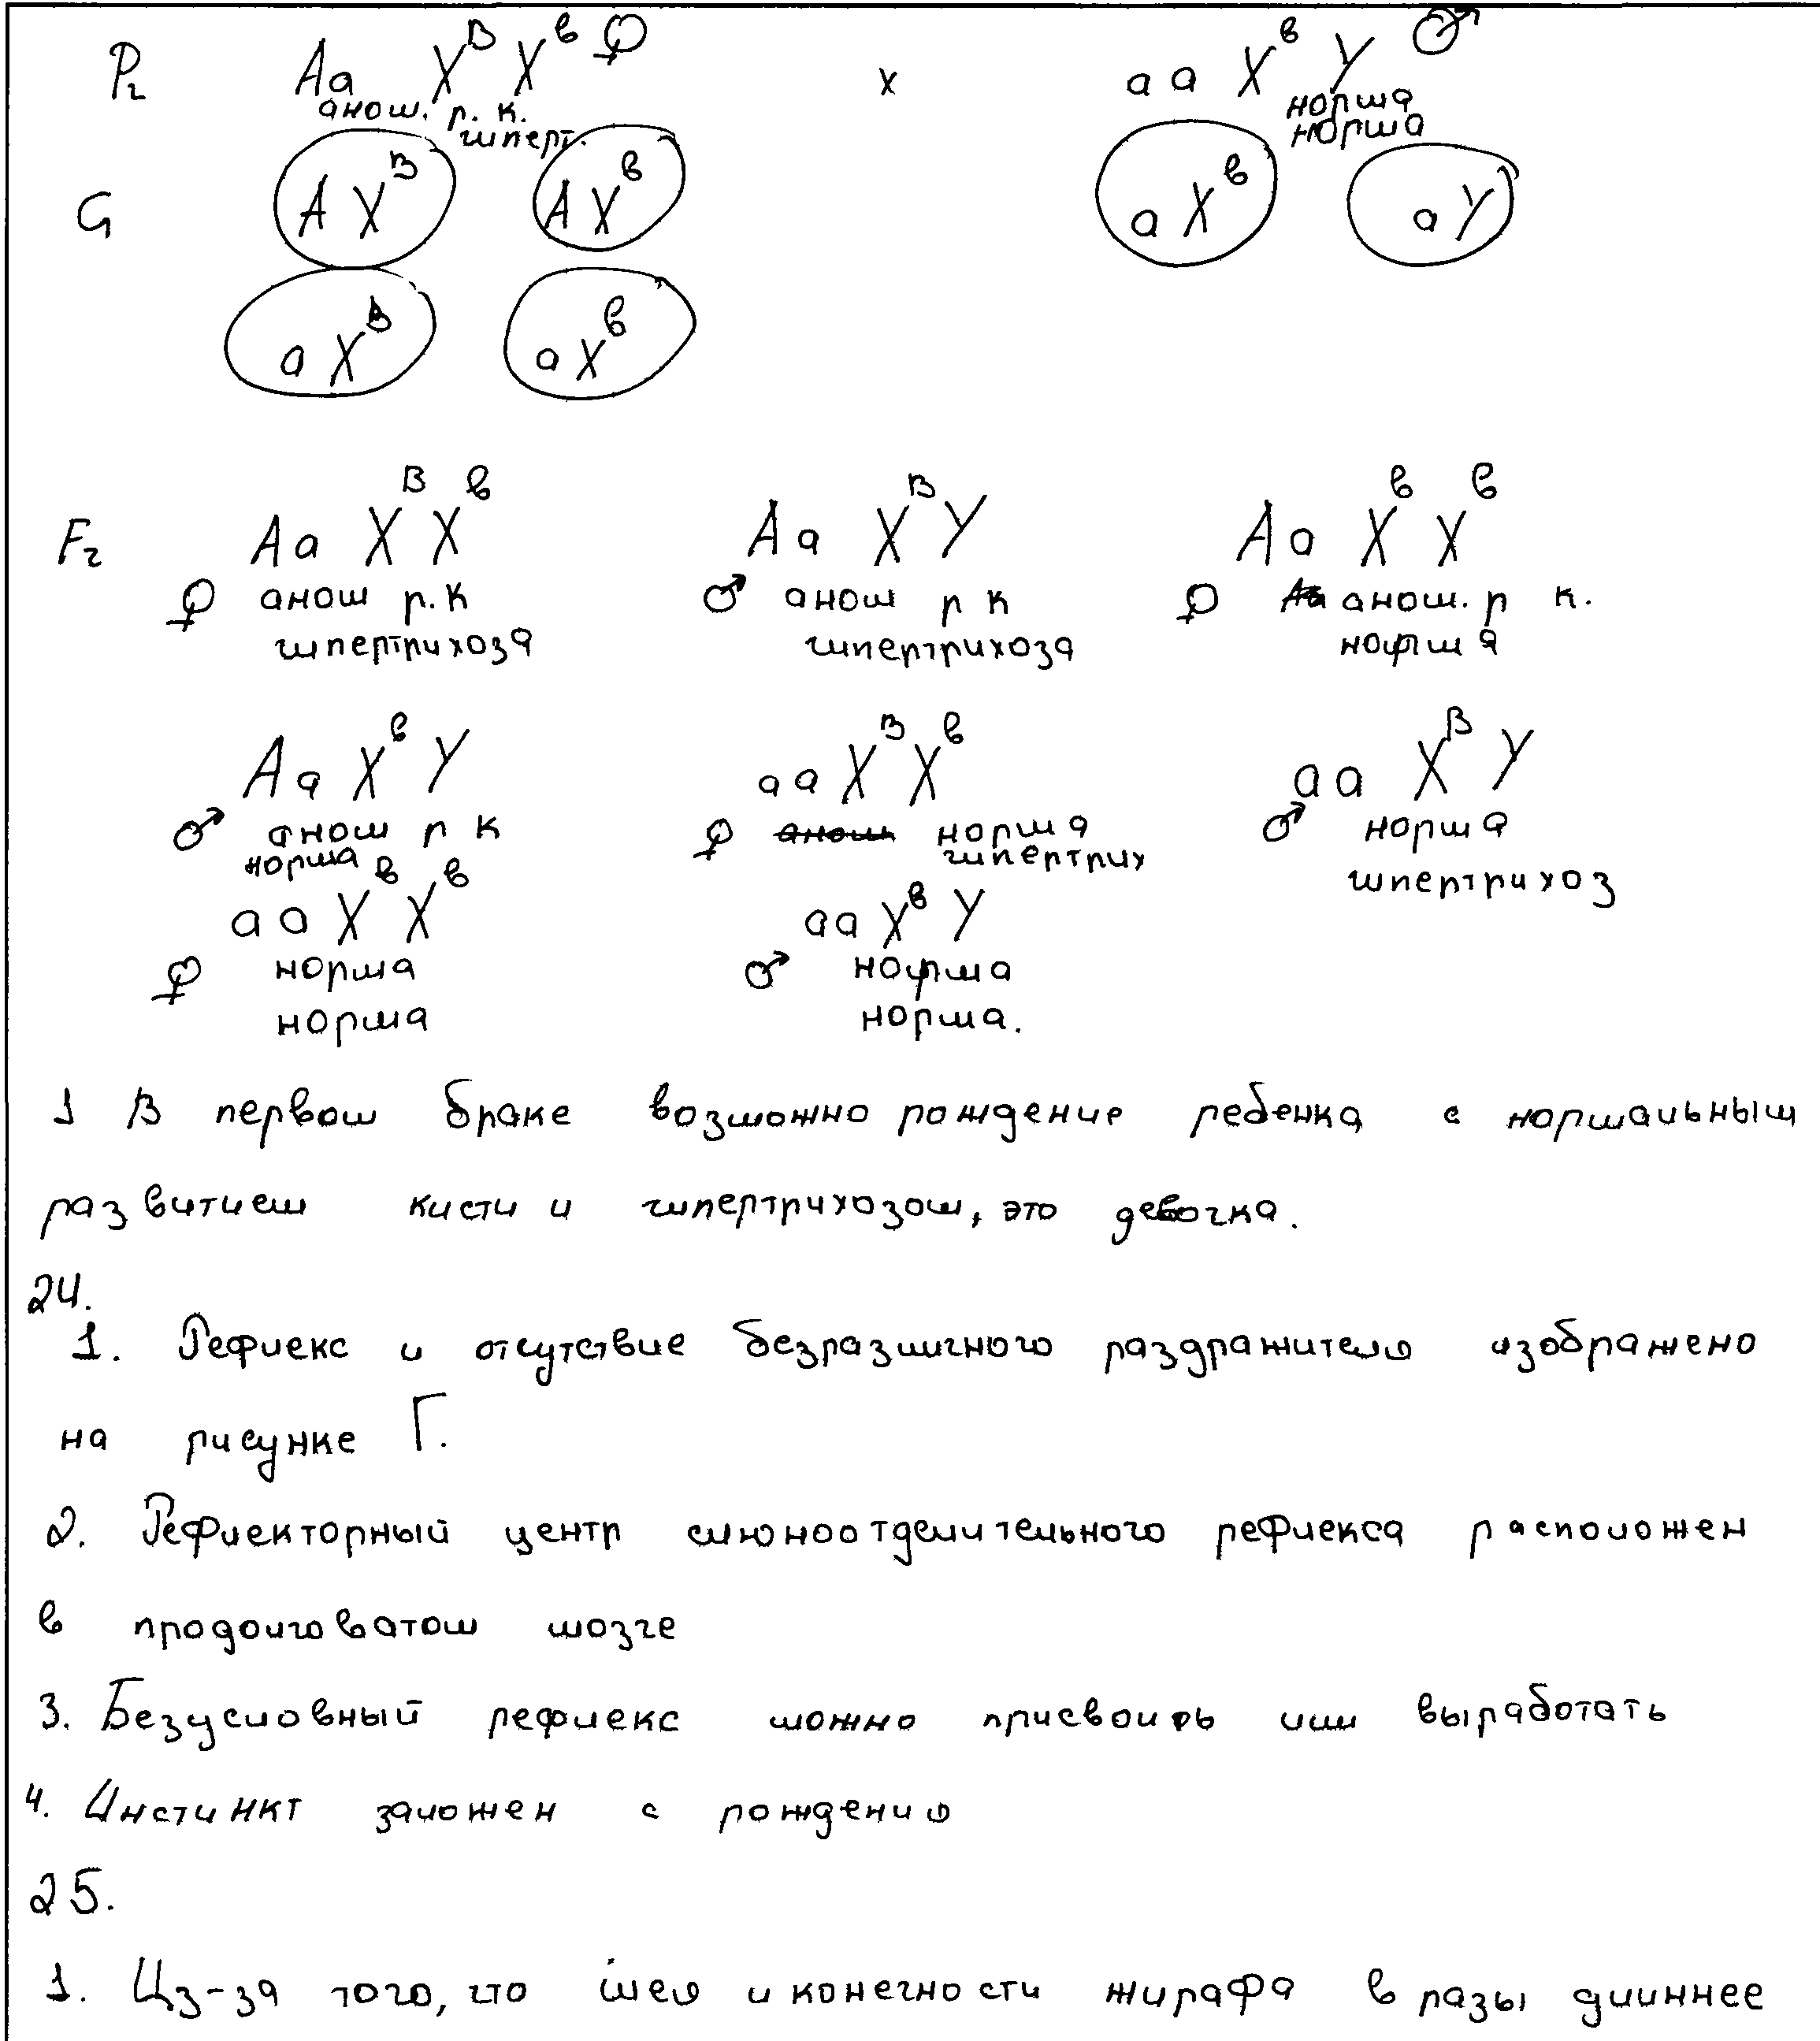 P₂ Aa X^B X^в ♀ x aa X^в Y ♂
аном. р. к. норма
гиперт. норма
G AX^B AX^в aX^в aY
aX^B aX^в
F₂ Aa X^B X^в Aa X^B Y Aa X^в X^в
♀ аном р. к ♂ аном р к ♀ аном. р к.
гипертрихоза гипертрихоза норма
Aa X^в Y aa X^B X^в aa X^B Y
♂ аном р к ♀ норма ♂ норма
норма гипертрих гипертрихоз
aa X^в X^в aa X^в Y
♀ норма ♂ норма
норма норма.
1 В первом браке возможно рождение ребенка с нормальным
развитием кисти и гипертрихозом, это девочка.
24.
1. Рефлекс и отсутствие безразличного раздражителя изображено
на рисунке Г.
2. Рефлекторный центр слюноотделительного рефлекса расположен
в продолговатом мозге
3. Безусловный рефлекс можно присвоить или выработать
4. Инстинкт заложен с рождения
25.
1. Из-за того, что шея и конечности жирафа в разы длиннее